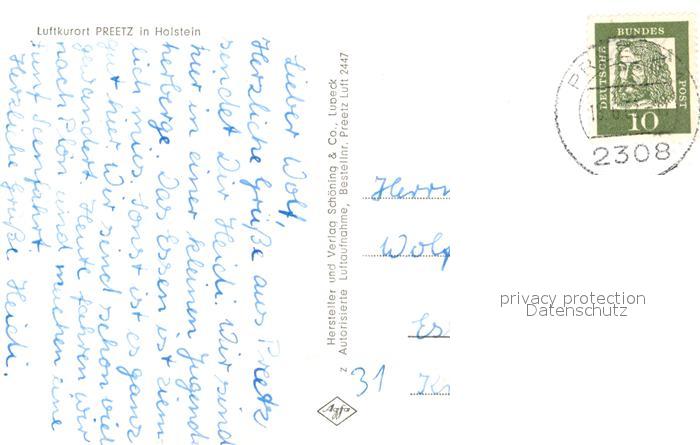 Luftkurort PREETZ in Holstein
Lieber Wolf,
Herzliche Grüße aus Preetz
sendet Dir Heidi. Wir sind
hier in einer kleinen Jugend
herberge. Das Essen ist ziem-
lich mies. Sonst ist es ganz
gut hier. Wir sind schon viel
gewandert. Heute fahren wir
nach Plön und machen eine
fünf Seenfahrt.
Herzliche Grüße Heidi.
Hersteller und Verlag Schöning & Co., Lübeck
z Autorisierte Luftaufnahme, Bestellnr. Preetz Luft 2447
Agfa
DEUTSCHE BUNDESPOST
10
2308
Herrn
Wolf
31
privacy protection
Datenschutz